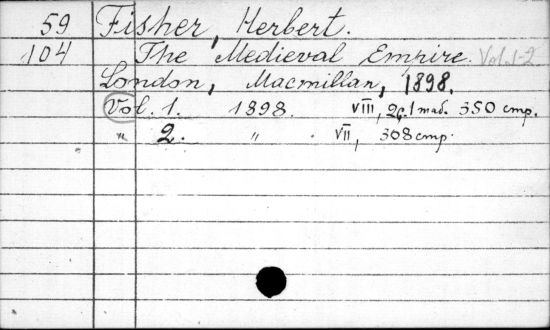 59 Fisher, Herbert.
104 The Medieval Empire. Vol. 1-2
London, Macmillan, 1898.
Vol. 1. 1898. VIII, 2c. 1 таб. 350 стр.
" 2. " . VII, 308 стр.